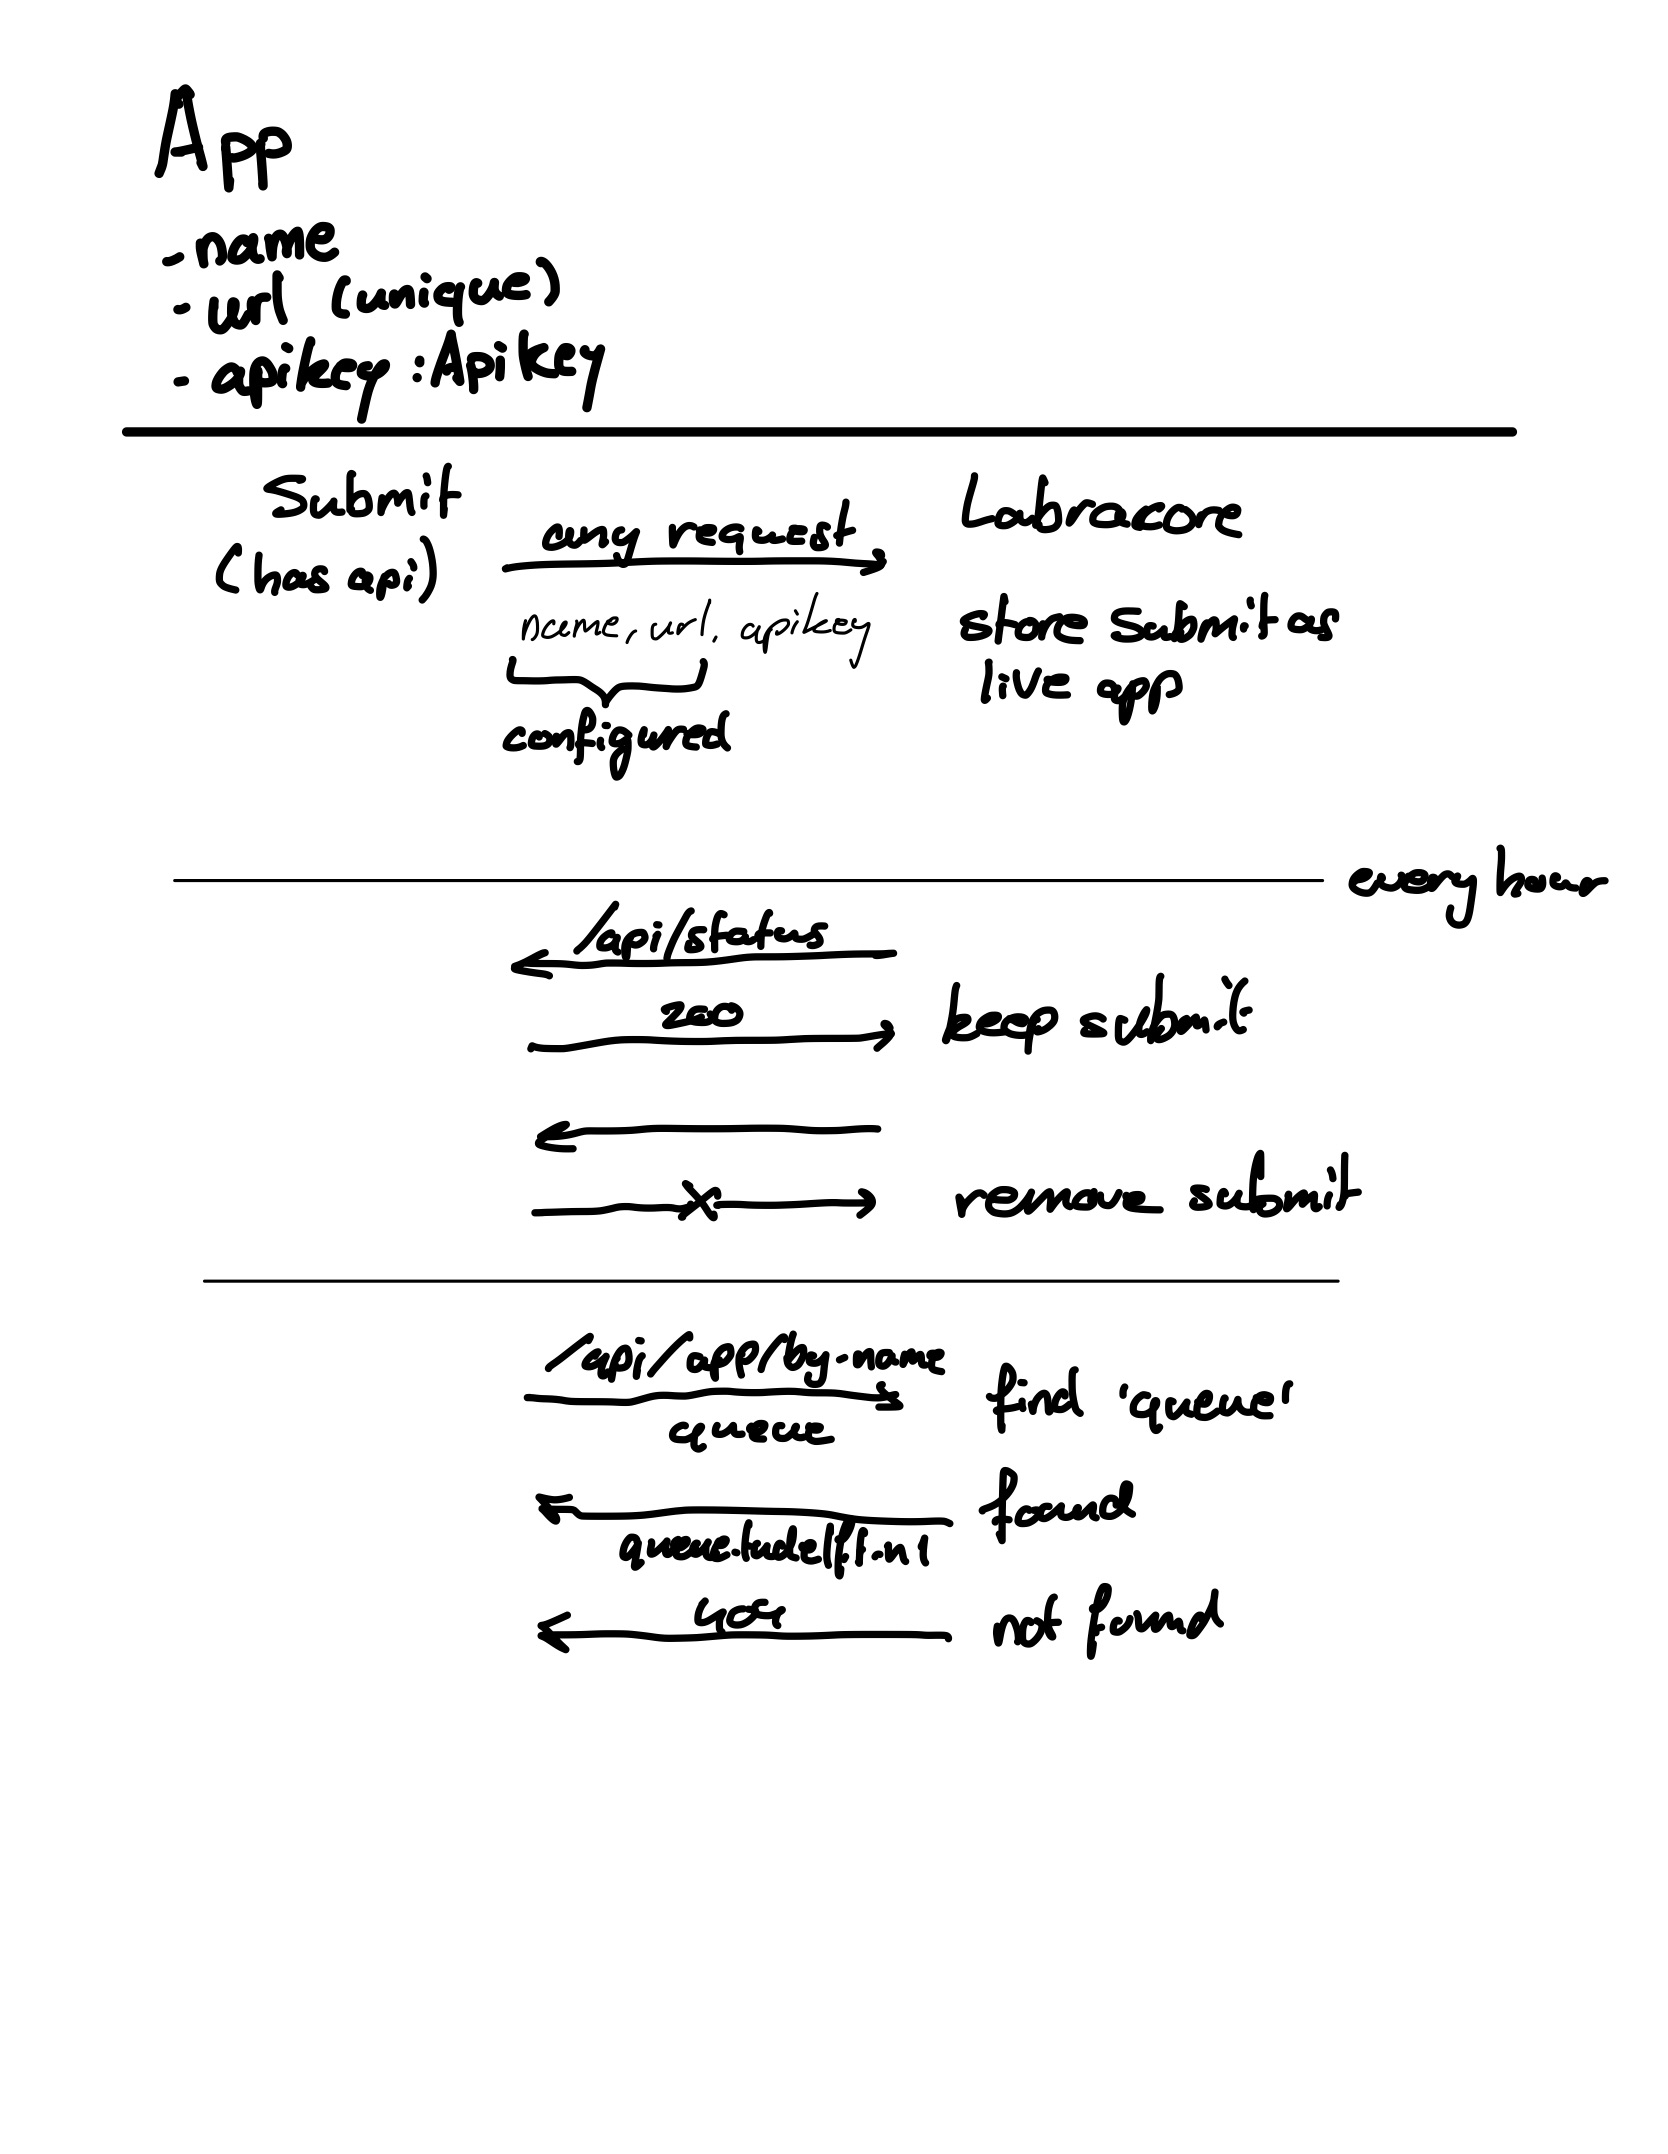 App
- name
- url (unique)
- apikey : Apikey
Submit
(has api)
any request
name, url, apikey
configured
Labracore
store Submit as
live app
every hour
/api/status
200
keep submit
X
remove submit
/api/app/by-name
queue
find 'queue'
found
queue.tudelft.nl
404
not found